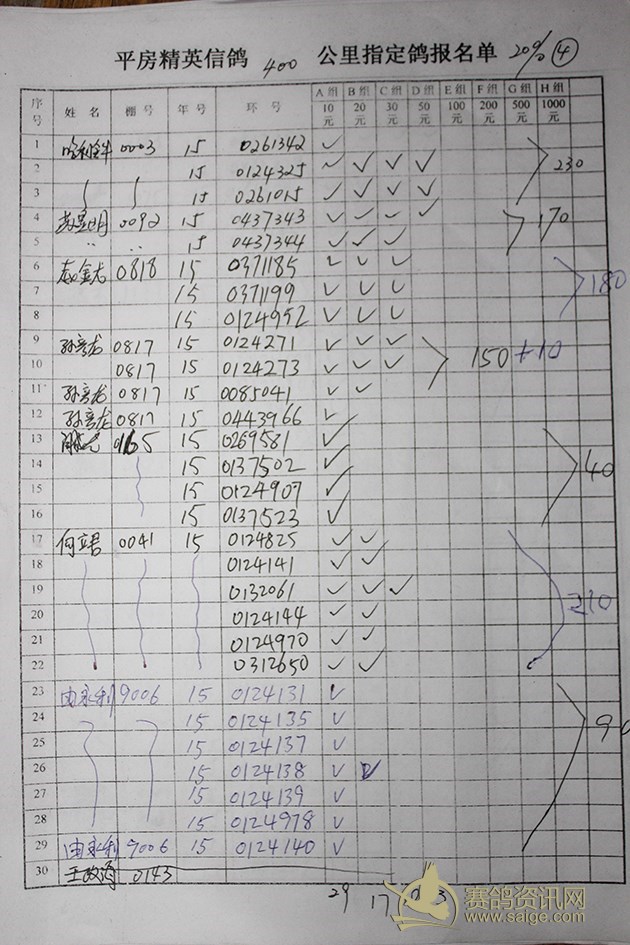 平房精英信鸽 400 公里指定鸽报名单 20% ④
序号 姓 名 棚 号 年 号 环 号 A 组 10 元 B 组 20 元 C 组 30 元 D 组 50 元 E 组 100 元 F 组 200 元 G 组 500 元 H 组 1000 元
1 0003 15 0261342 ✓
2 15 0124325 ✓ ✓ ✓ ✓ 230
3 15 0261015 ✓ ✓ ✓ ✓
4 0092 15 0437343 ✓ ✓ ✓ ✓ 170
5 15 0437344 ✓ ✓ ✓
6 0818 15 0371185 ✓ ✓ ✓
7 15 0371199 ✓ ✓ ✓ 180
8 15 0124952 ✓ ✓ ✓
9 孙彦龙 0817 15 0124271 ✓ ✓ ✓
10 0817 15 0124273 ✓ ✓ ✓ 150+10
11 孙彦龙 0817 15 0085041 ✓ ✓
12 孙彦龙 0817 15 0443966 ✓
13 15 0269581 ✓
14 15 0137502 ✓ 40
15 15 0124907 ✓
16 15 0137523 ✓
17 0041 15 0124825 ✓ ✓
18 0124141 ✓ ✓
19 0132061 ✓ ✓ ✓
20 0124144 ✓ ✓ 210
21 0124970 ✓ ✓
22 0312650 ✓ ✓
23 由永利 9006 15 0124131 ✓
24 15 0124135 ✓ 90
25 15 0124137 ✓
26 15 0124138 ✓ ✓
27 15 0124139 ✓
28 15 0124978 ✓
29 由永利 9006 15 0124140 ✓
30 0143
29 17 3
赛鸽资讯网
www.saige.com